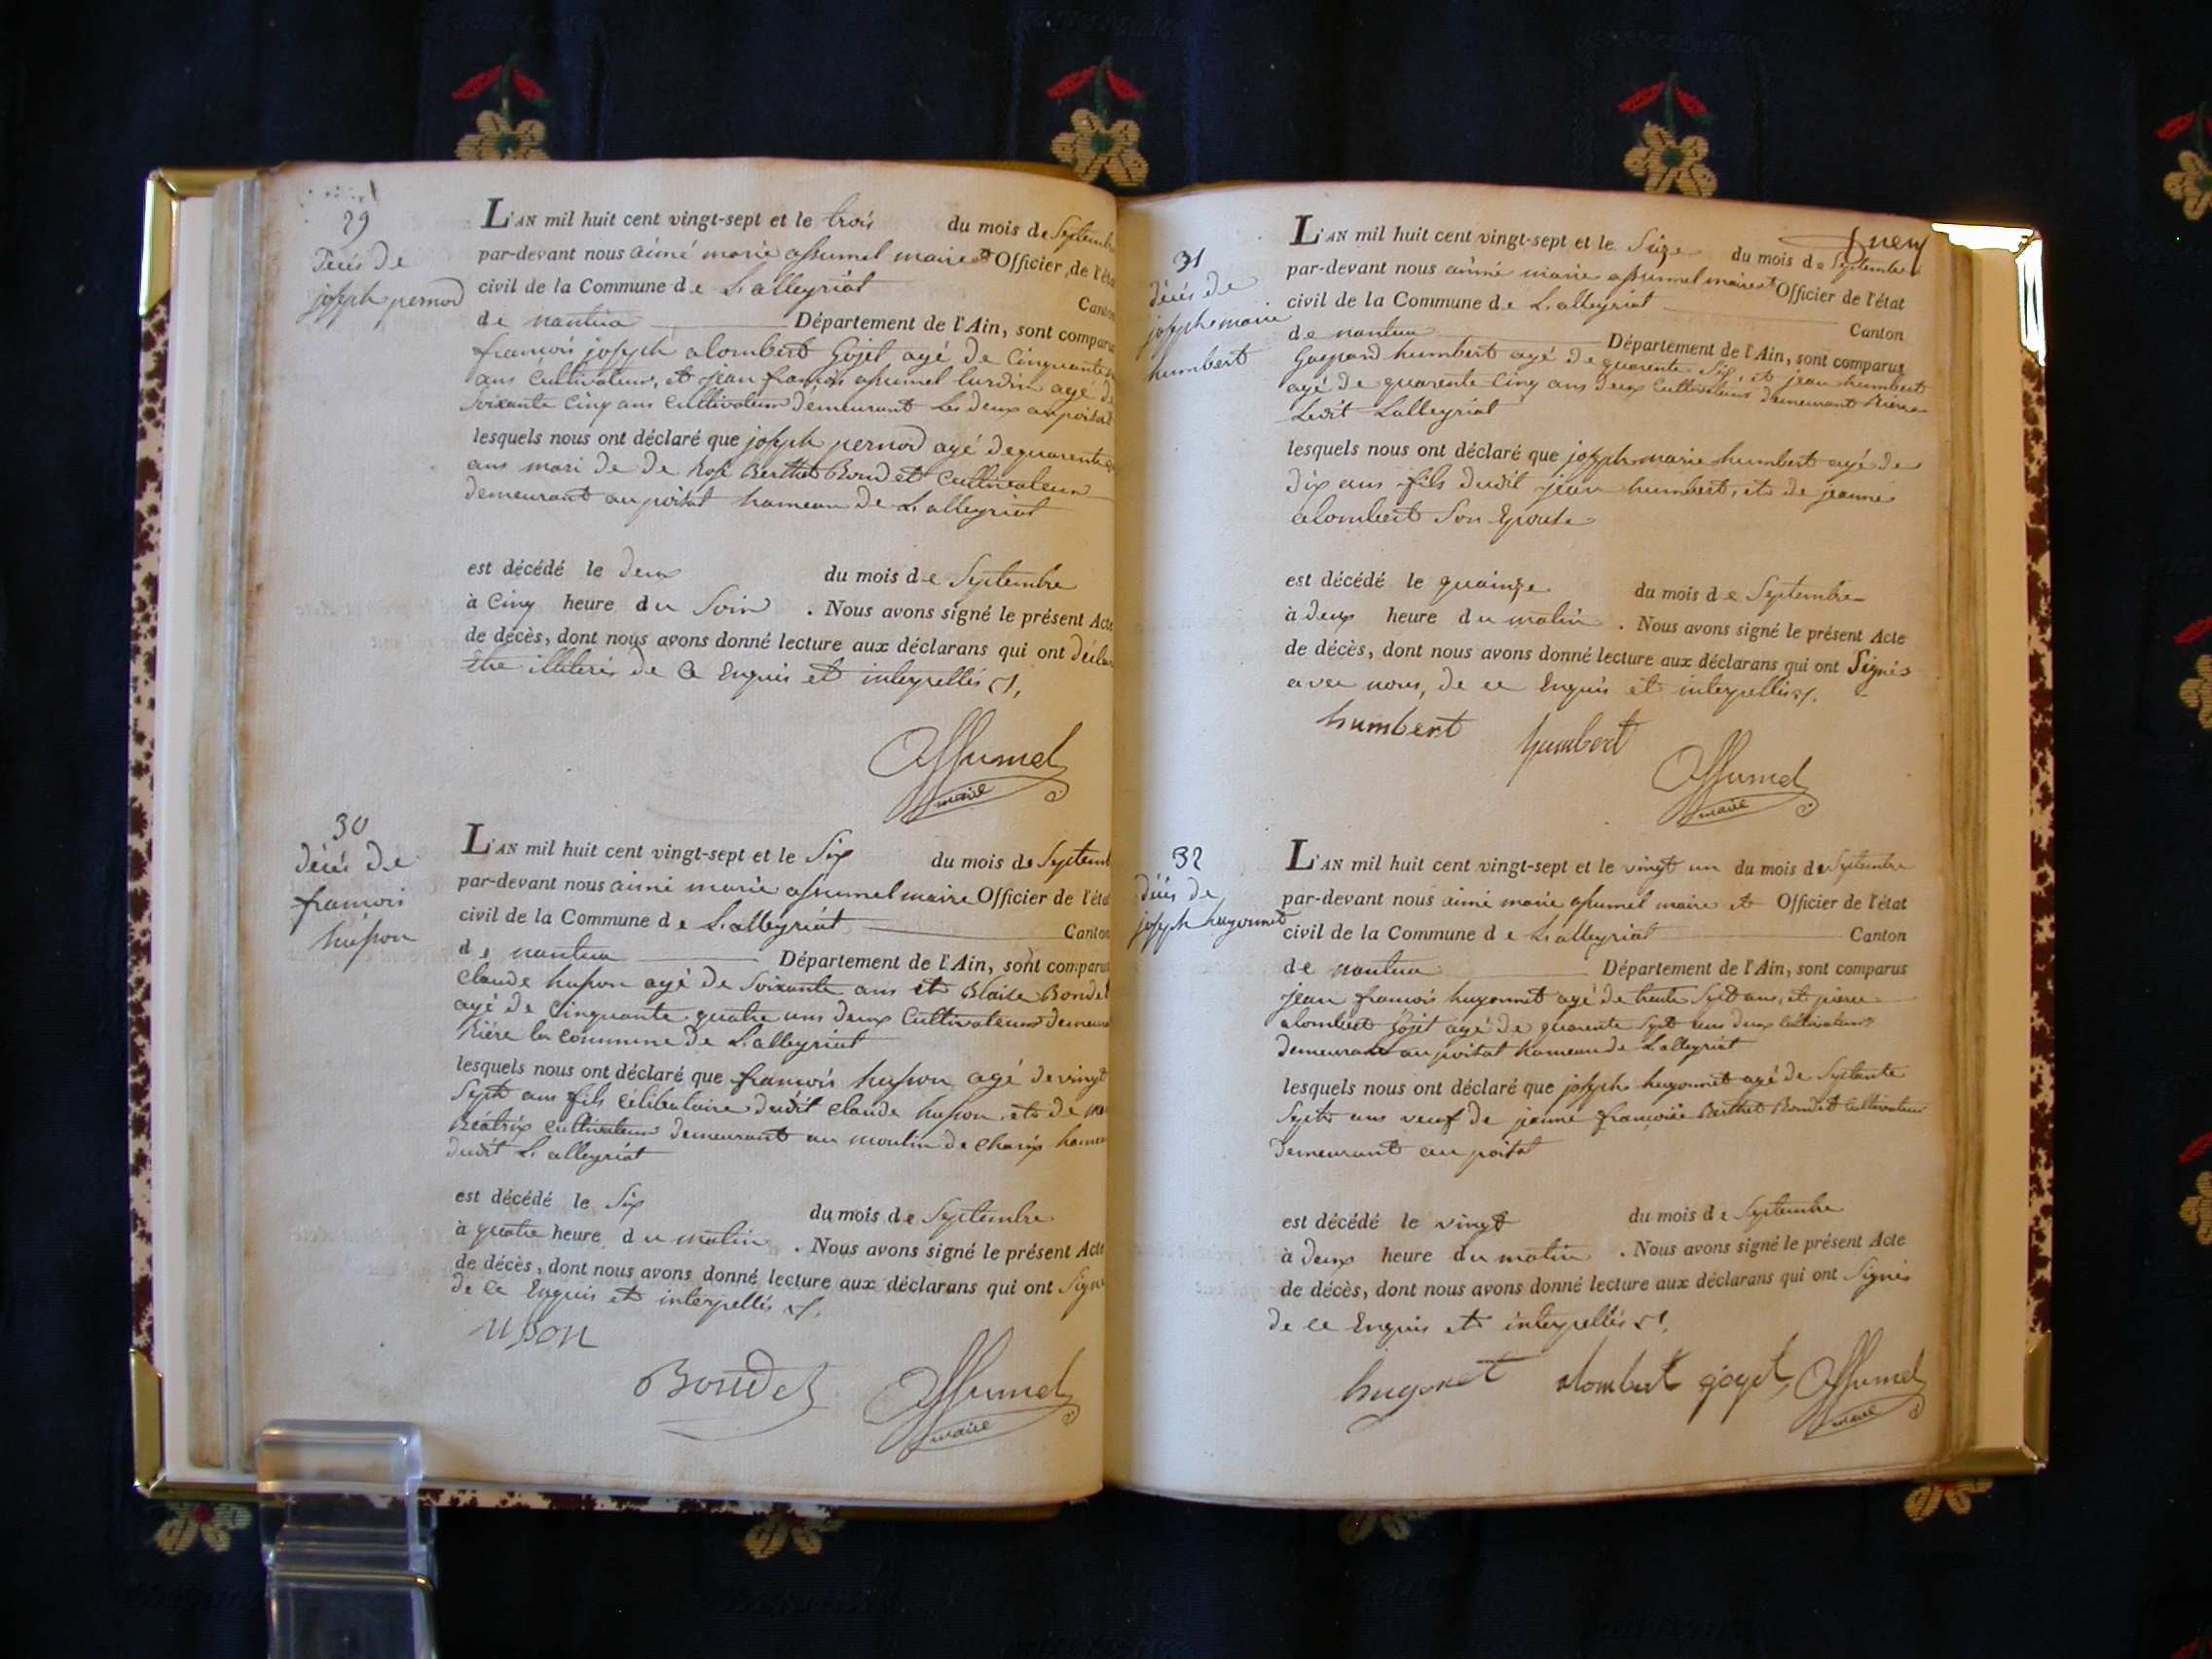 29
décés de
joseph pernod
L'AN mil huit cent vingt-sept et le trois du mois de Septemb
par-devant nous aimé marie assumel maire et Officier de l'éta
civil de la Commune de Lalleyriat Canton
de nantua Département de l'Ain, sont comparu
françois joseph alombert Gojet agé de Cinquante
ans Cultivateur, et jean françois assumel lurdin agé de
Soixante Cinq ans Cultivateur demeurant les deux au poisat
lesquels nous ont déclaré que joseph pernod agé de quarente
ans mari de de Rose Berthet Bondet Cultivateur
demeurant au poisat hameau de Lalleyriat
est décédé le deux du mois de Septembre
à Cinq heure du Soir . Nous avons signé le présent Acte
de décès, dont nous avons donné lecture aux déclarans qui ont déclar
Etre illiterés de Ce Enquis et interpellés
Assumel
maire
30
décés de
francois
husson
L'AN mil huit cent vingt-sept et le Six du mois de Septemb
par-devant nous aimé marie assumel maire Officier de l'éta
civil de la Commune de Lalleyriat Canton
de nantua Département de l'Ain, sont comparus
Claude husson agé de Soixante ans et Blaise Bondet
agé de Cinquante quatre ans deux Cultivateurs demeura
Riére la commune de Lalleyriat
lesquels nous ont déclaré que françois husson agé de vingt
Sept ans fils célibataire dudit Claude husson et de
Béatrix Cultivateur demeurant au moulin de Charix hamea
dudit Lalleyriat
est décédé le Six du mois de Septembre
à quatre heure du matin . Nous avons signé le présent Acte
de décès, dont nous avons donné lecture aux déclarans qui ont Signé
de Ce Enquis et interpellés
usson
Bondet
Assumel
maire
31
décés de
joseph marie
humbert
L'AN mil huit cent vingt-sept et le Seize du mois de Septembre
par-devant nous aimé marie assumel maire et Officier de l'état
civil de la Commune de Lalleyriat Canton
de nantua Département de l'Ain, sont comparus
Gaspard humbert agé de quarente Six, et jean humbert
agé de quarente Cinq ans deux Cultivateurs demeurant Riére
Ledit Lalleyriat
lesquels nous ont déclaré que joseph marie humbert agé de
dix ans fils dudit jean humbert, et de jeanne
alombert Son Epouse
est décédé le quainze du mois de Septembre
à deux heure du matin . Nous avons signé le présent Acte
de décès, dont nous avons donné lecture aux déclarans qui ont Signés
avec nous, de ce Enquis et interpellés
humbert humbert
Assumel
maire
32
décés de
joseph hugonnet
L'AN mil huit cent vingt-sept et le vingt un du mois de Septembre
par-devant nous aimé marie assumel maire et Officier de l'état
civil de la Commune de Lalleyriat Canton
de nantua Département de l'Ain, sont comparus
jean francois hugonnet agé de trente Sept ans, et pierre
alombert Gojet agé de quarente Sept ans deux Cultivateurs
demeurant au poisat hameau de Lalleyriat
lesquels nous ont déclaré que joseph hugonnet agé de Septante
Sept ans veuf de jeanne françoise Berthet Bondet Cultivateur
demeurant au poisat
est décédé le vingt du mois de Septembre
à deux heure du matin . Nous avons signé le présent Acte
de décès, dont nous avons donné lecture aux déclarans qui ont Signés
de Ce Enquis et interpellés
hugonet alombert gojet Assumel
maire